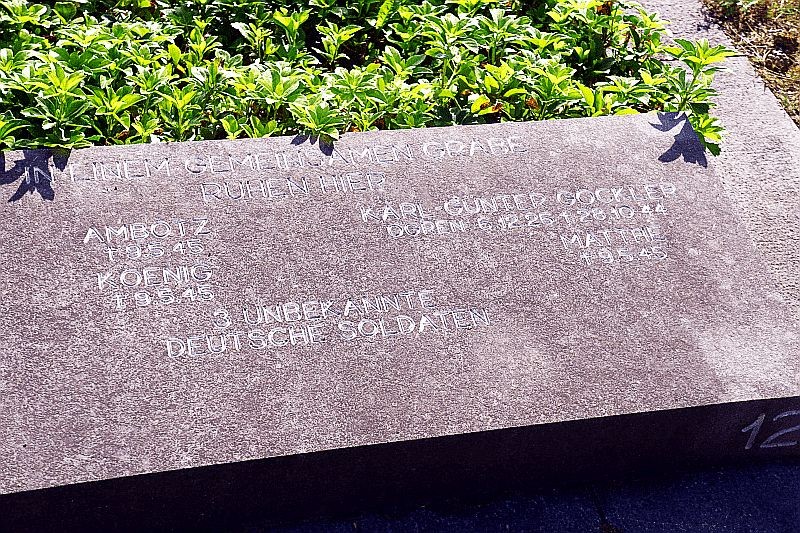 IN EINEM GEMEINSAMEN GRABE
RUHEN HIER
AMBOTZ
† 9.5.45
KOENIG
† 9.5.45
KARL-GÜNTER GÖCKLER
OGREN 6.12.25 † 26.10.44
MATTHE
† 9.5.45
3 UNBEKANNTE
DEUTSCHE SOLDATEN
12